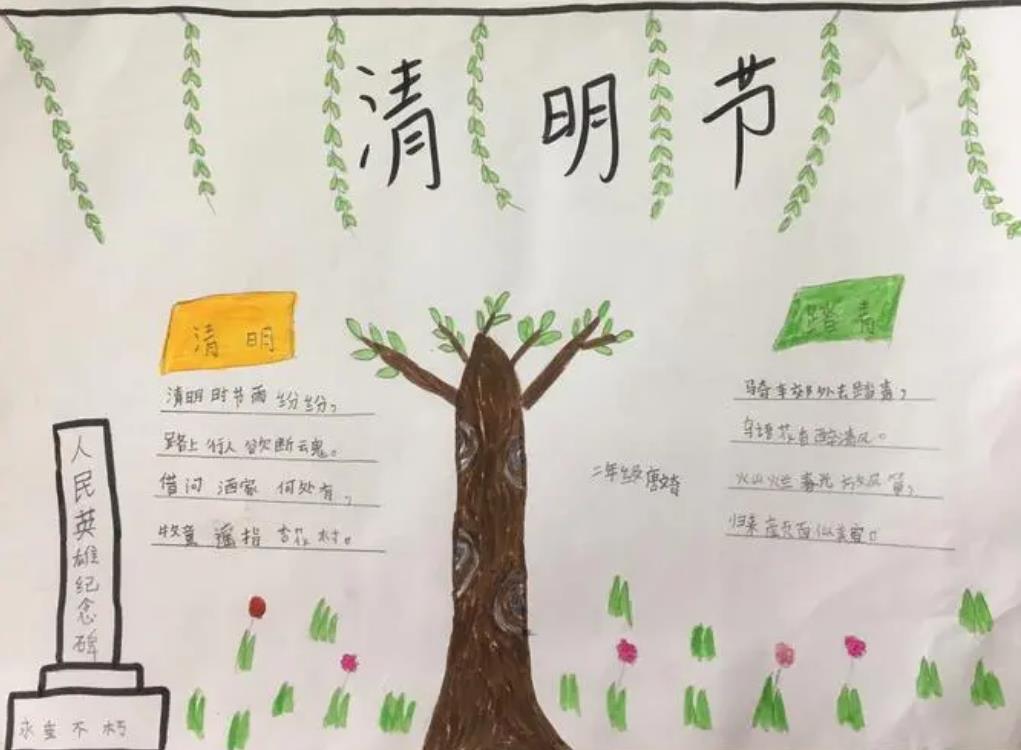 清明节
清明
清明时节雨纷纷，
路上行人欲断云鬼。
借问酒家何处有，
牧童遥指杏花村。
踏青
骑车郊外去踏青，
鸟语花香醉清风。
火山烂春光
归来
二年级唐
人民英雄纪念碑
永垂不朽